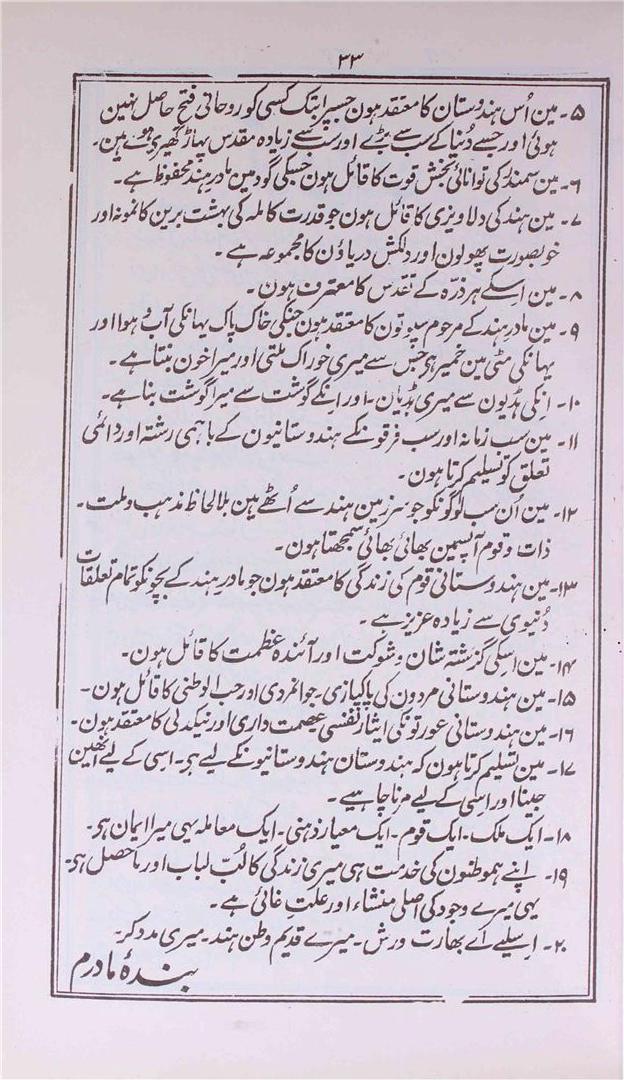 ۳۳
۵۔ مین اُس ہندوستان کا معتقد ہون جسپر ابتک کسی کو روحانی فتح حاصل نہین
ہوئی اور جسے دُنیا کے سب سے بڑے اور سب سے زیادہ مقدس پہاڑ گھیری ہوے ہین۔
۶۔ مین سمندر کی توانائی بخش قوت کا قائل ہون جسکی گود مین مادرِ ہند محفوظ ہے۔
۷۔ مین ہند کی دلاویزی کا قائل ہون جو قدرت کاملہ کی بہشت برین کا نمونہ اور
خوبصورت پھولون اور دلکش دریاؤن کا مجموعہ ہے۔
۸۔ مین اسکے ہر ذرّہ کے تقدّس کا معترف ہون۔
۹۔ مین مادرِ ہند کے مرحوم سپوتون کا معتقد ہون جنکی خاک پاک یہانکی آب و ہوا اور
یہانکی مٹی مین خمیر ہی جس سے میری خوراک ملتی اور میرا خون بنتا ہے۔
۱۰۔ انکی ہڈیون سے میری ہڈیان۔ اور انکے گوشت سے میرا گوشت بنا ہے۔
۱۱۔ مین سب زمانہ اور سب فرقونکے ہندوستانیون کے باہمی رشتہ اور دائمی
تعلق کو تسلیم کرتا ہون۔
۱۲۔ مین اُن سب لوگونکو جو سرزمین ہند سے اُٹھے ہین بلا لحاظ مذہب و ملت۔
ذات و قوم آپسمین بھائی بھائی سمجھتا ہون۔
۱۳۔ مین ہندوستانی قوم کی زندگی کا معتقد ہون جو مادرِ ہند کے بچونکو تمام تعلقات
دُنیوی سے زیادہ عزیز ہے۔
۱۴۔ مین اسکی گزشتہ شان و شوکت اور آئندہ عظمت کا قائل ہون۔
۱۵۔ مین ہندوستانی مردون کی پاکبازی۔ جوانمردی اور حب الوطنی کا قائل ہون۔
۱۶۔ مین ہندوستانی عورتونکی ایثار نفسی عصمت داری اور نیکدلی کا معتقد ہون۔
۱۷۔ مین تسلیم کرتا ہون کہ ہندوستان ہندوستانیونکے لیے ہے۔ اسی کے لیے اُنھین
جینا اور اسی کے لیے مرنا چاہیے۔
۱۸۔ ایک ملک۔ ایک قوم۔ ایک معیار ذہنی۔ ایک معاملہ یہی میرا ایمان ہی۔
۱۹۔ اپنے ہموطنون کی خدمت ہی میری زندگی کا لُبّ لباب اور ماحصل ہی۔
یہی میرے وجود کی اصلی منشاء اور علتِ غائی ہے۔
۲۰۔ اسلیے اے بھارت ورش۔ میرے قدیم وطن ہند۔ میری مدد کر۔
بندۂ مادرم